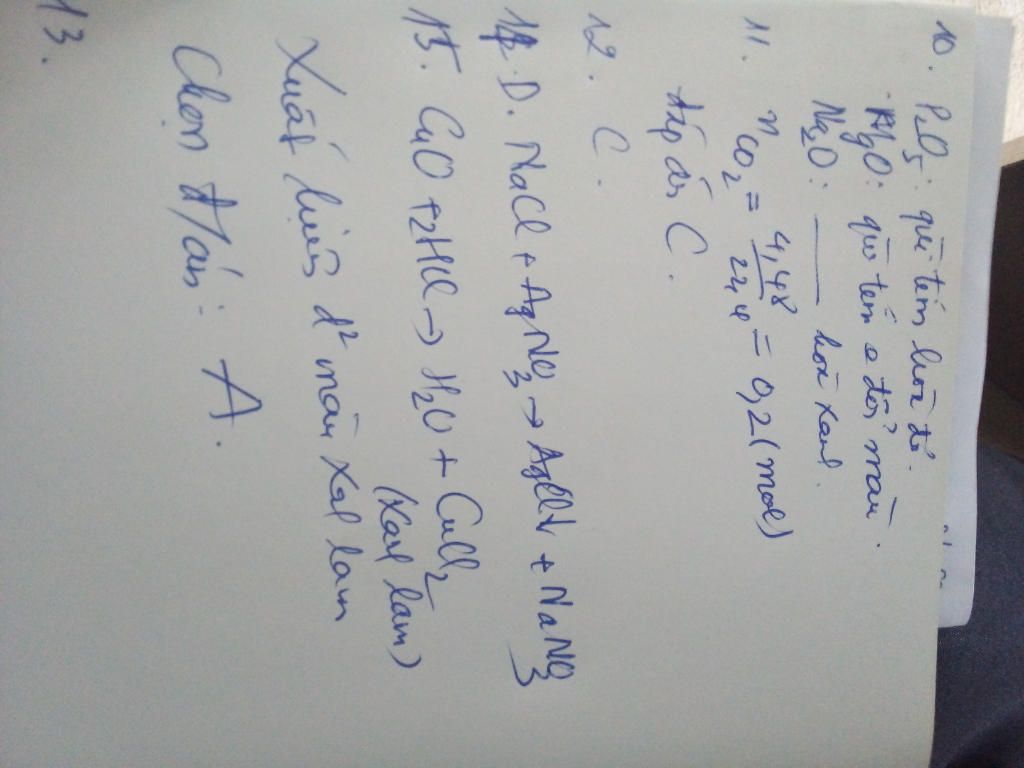 10. P2O5: quì tím hoá đỏ.
MgO: quì tím o đổi màu.
Na2O: ____ hoá xanh.
11. nCO2 = 4,48 / 22,4 = 0,2 (mol)
Đáp án C.
12. C.
14. D. NaCl + AgNO3 → AgCl↓ + NaNO3
15. CuO + 2HCl → H2O + CuCl2
(xanh lam)
Xuất hiện d² màu xanh lam
Chọn đ/án: A.
13.